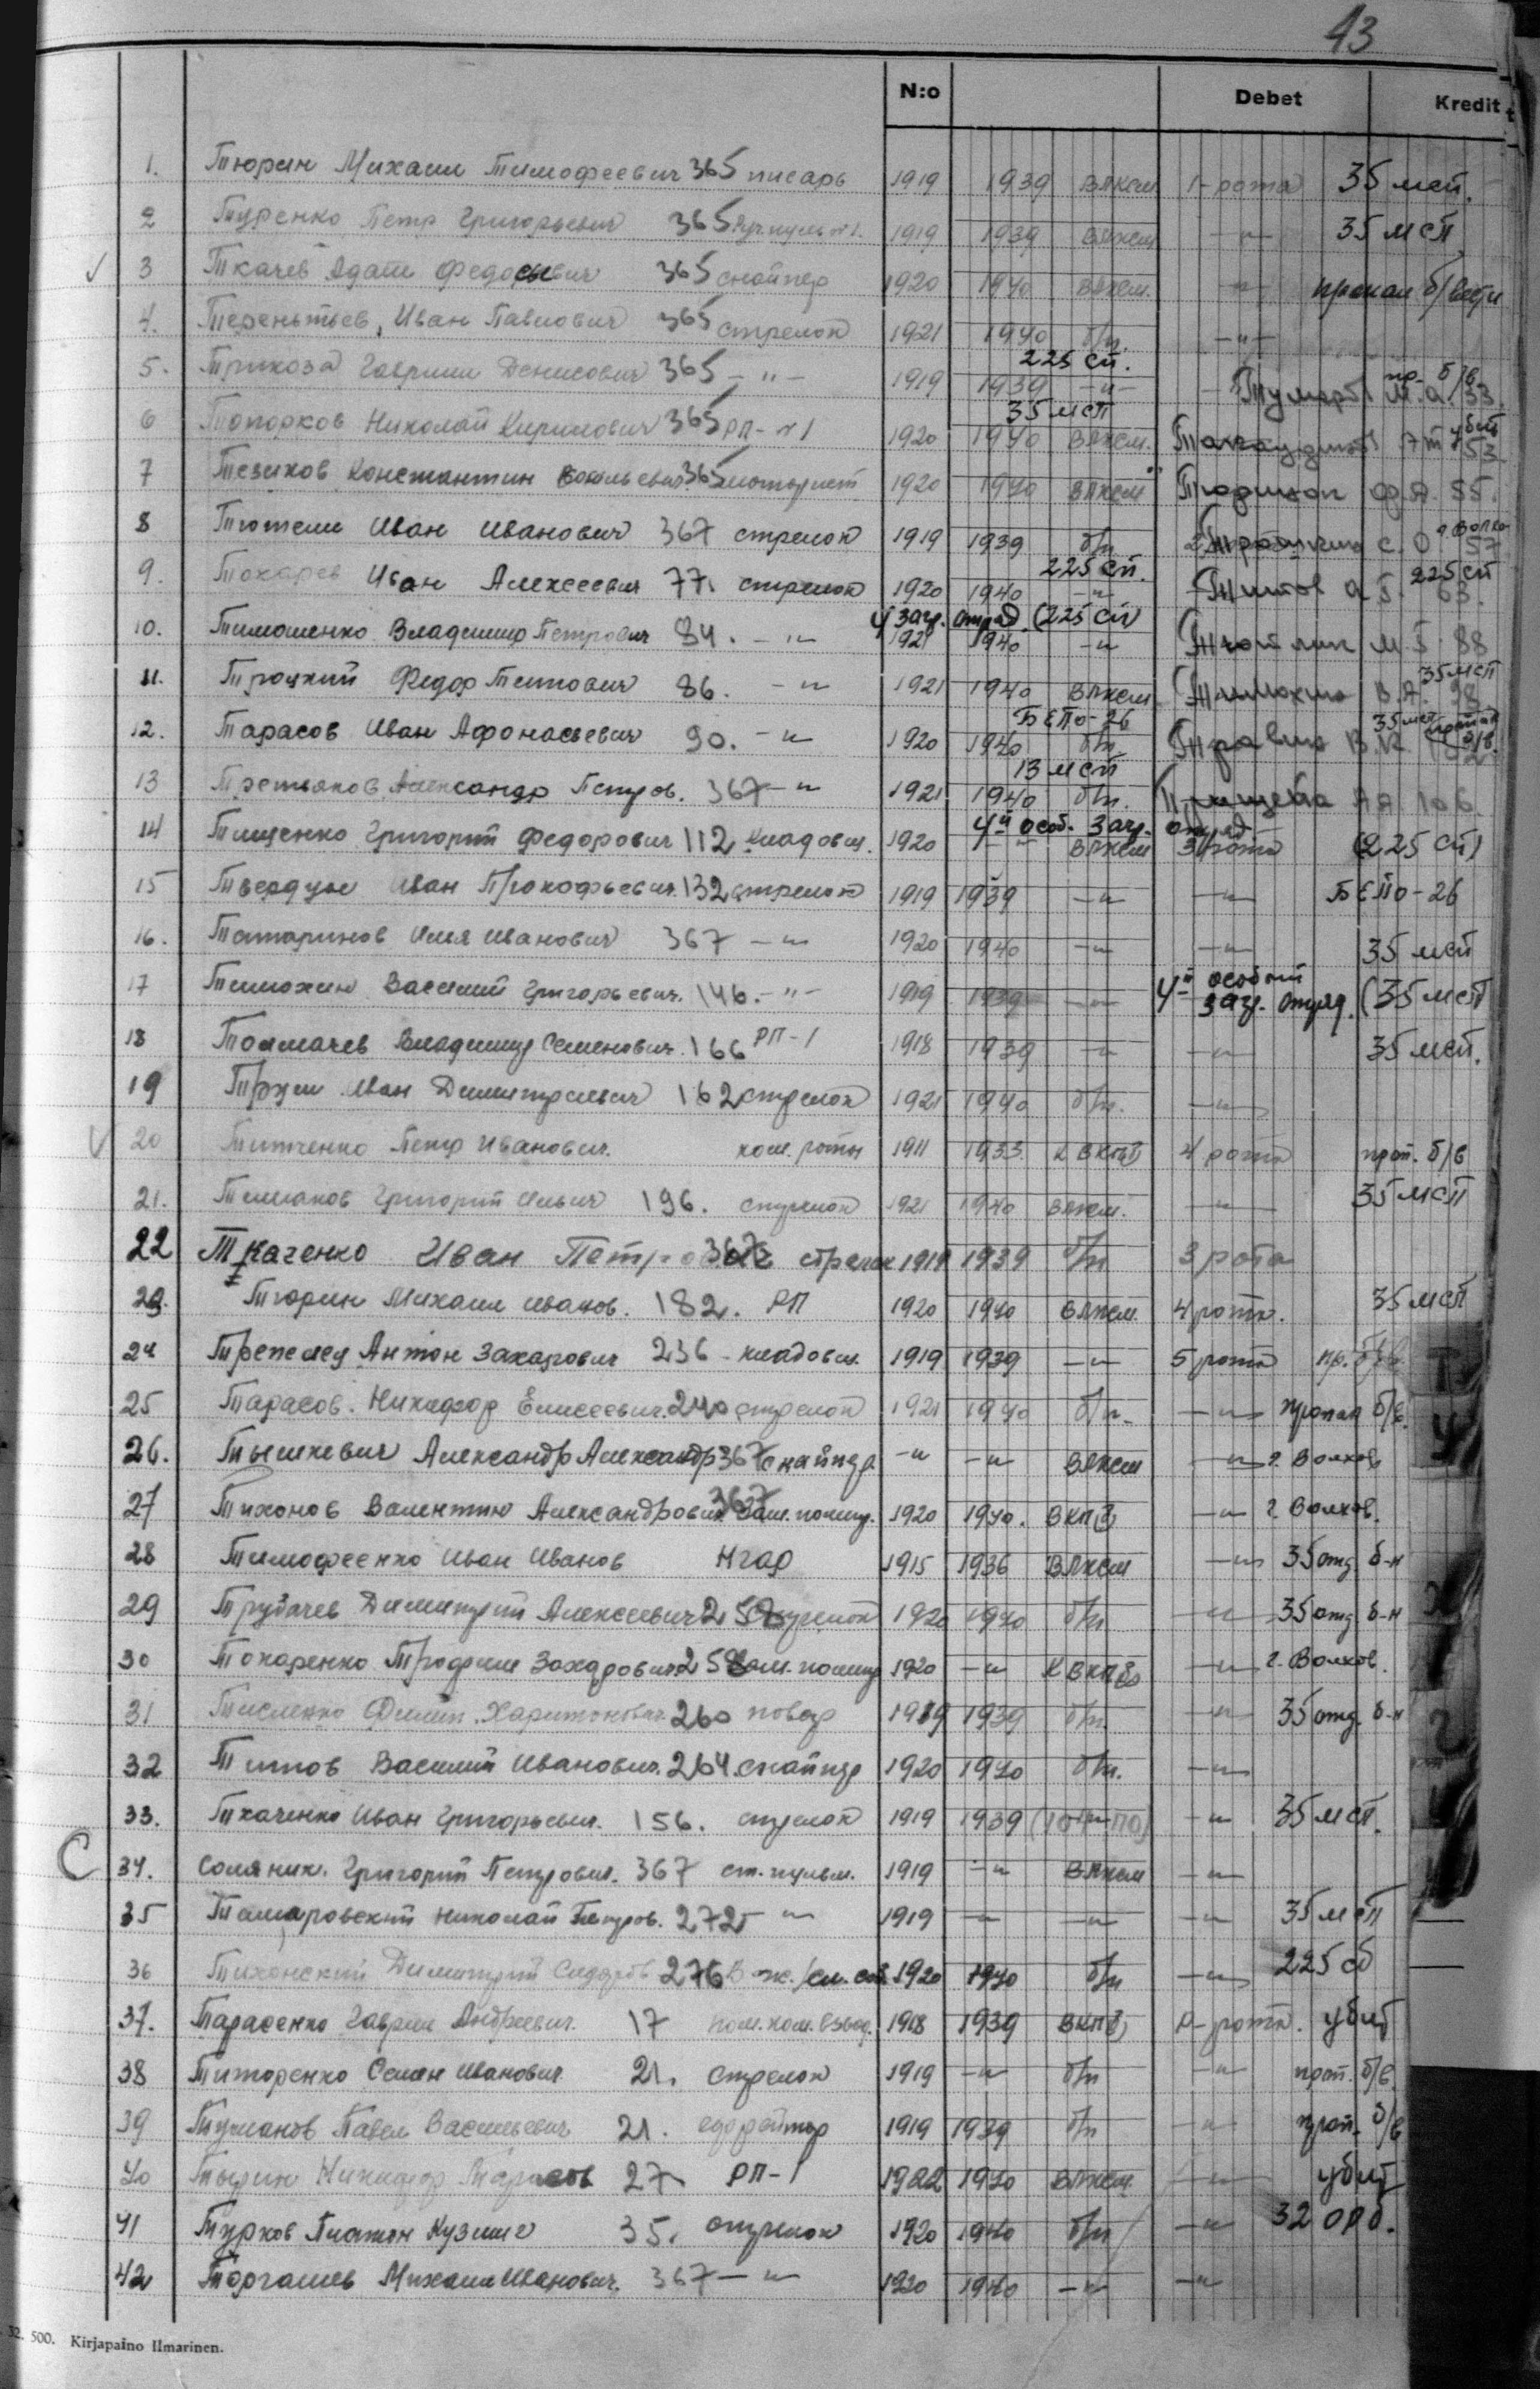 43
N:o Debet Kredit
1. Тюрин Михаил Тимофеевич 365 писарь 1919 1939 ВЛКСМ 1-рота 35 мсп.
2 Туренко Петр Григорьевич 365 1919 1939 ВЛКСМ -"- 35 мсп
√ 3 Ткачев Адам Федосеевич 365 снайпер 1920 1940 ВЛКСМ. -"- пропал б/вести
4. Терентьев, Иван Павлович 365 стрелок 1921 1940 б/п. -"-
225 сп.
5. Трикоза Гаврил Денисович 365 -"- 1919 1939 -"- пр. б/в М.А. 33.
35 мсп
6 Топорков Николай Кирилович 365 РП-№1 1920 1940 ВЛКСМ. убит 53
7 Тезиков Константин Васильевич 365 1920 1940 ВЛКСМ 55.
8 Тютени Иван Иванович 367 стрелок 1919 1939 б/п С.О. 57
225 сп.
9. Токарев Иван Алексеевич 77. стрелок 1920 1940 -"- Титов 225 сп 63.
4 загр. отряд (225 сп)
10. Тимошенко Владимир Петрович 84. -"- 1921 1940 -"- 88
11. Троцкий Федор Титович 86. -"- 1921 1940 ВЛКСМ В.А. 98 35 мсп
БЕПО-26
12. Тарасов Иван Афонасьевич 90. -"- 1920 1940 б/п. В.К. 35 мсп
13 мсп
13 Третьяков Александр Петров. 367 -"- 1921 1940 б/п. 106
4й особ. загр. отряд
14 Тищенко Григорий Федорович 112 кладовщ. 1920 -"- ВЛКСМ 3 рота (225 сп)
15 Твердун Иван Прокофьевич 132 стрелок 1919 1939 -"- -"- БЕПО-26
16. Татаринов Илья Иванович 367 -"- 1920 1940 -"- -"- 35 мсп
17 Тимохин Василий Григорьевич. 146. -"- 1919 1939 -"- 4й особый загр. отряд. (35 мсп
18 Толмачев Владимир Семенович. 166 РП-1 1918 1939 -"- -"- 35 мсп.
19 Иван Димитриевич 162 стрелок 1921 1940 б/п. -"-
√ 20 Титченко Петр Иванович. ком. роты 1911 1933 к ВКП(б) 4 рота проп. б/в
21. Григорий Ильич 196. стрелок 1921 1940 ВЛКСМ. -"- 35 мсп
22 Ткаченко Иван Петрович 367 стрелок 1919 1939 б/п 3 рота
23. Тюрин Михаил Иванов. 182. РП 1920 1940 ВЛКСМ. 4 рота. 35 мсп
24 Трепелец Антон Захарович 236 - кладовщ. 1919 1939 -"- 5 рота пр. б/в.
25 Тарасов. Никифор Елисеевич. 240 стрелок 1921 1940 б/п. -"- пропал б/в.
26. Тышкевич Александр Александр 367 снайпер -"- -"- ВЛКСМ -"- г. Волхов
27 Тихонов Валентин Александрович 367 зам. полит. 1920 1940. ВКП(б) -"- г. Волхов.
28 Тимофеенко Иван Иванов 1915 1936 ВЛКСМ -"- 35 отд. б-н
29 Трубачев Димитрий Алексеевич 25 стрелок 1920 1940 б/п -"- 35 отд. б-н
30 Токаренко Трофим Захарович 258 зам. полит 1920 -"- К ВКП(б) -"- г. Волхов.
31 Филип. Харитонович. 260 повар 1919 1939 б/п. -"- 35 отд. б-н
32 Титов Василий Иванович. 264. снайпер 1920 1940 б/п. -"-
33. Ткаченко Иван Григорьевич. 156. стрелок 1919 1939 -"- 35 мсп.
С 34. Соляник. Григорий Петрович. 367 ст. пульм. 1919 -"- ВЛКСМ -"-
35 Николай Петров. 272 -"- 1919 -"- -"- -"- 35 мсп
36 Тихонский Димитрий Сидоров 276 1920 1940 б/п -"- 225 сб
37. Тарасенко Гаврил Андреевич. 17 пом. ком. взвод. 1918 1939 ВКП(б) Р-рота. убит
38 Титоренко Семен Иванович 21. стрелок 1919 -"- б/п -"- проп. б/в.
39 Туманов Павел Васильевич 21. ефрейтор 1919 1939 б/п -"- проп. б/в
40 Никифор Тарасов 27 РП-1 1922 1940 ВЛКСМ. -"- убит
41 Турков Платон Кузмич 35. стрелок 1920 1940 б/п -"- 32 орб.
42 Торгашев Михаил Иванович. 367 -"- 1920 1940 -"- -"-
32. 500. Kirjapaino Ilmarinen.